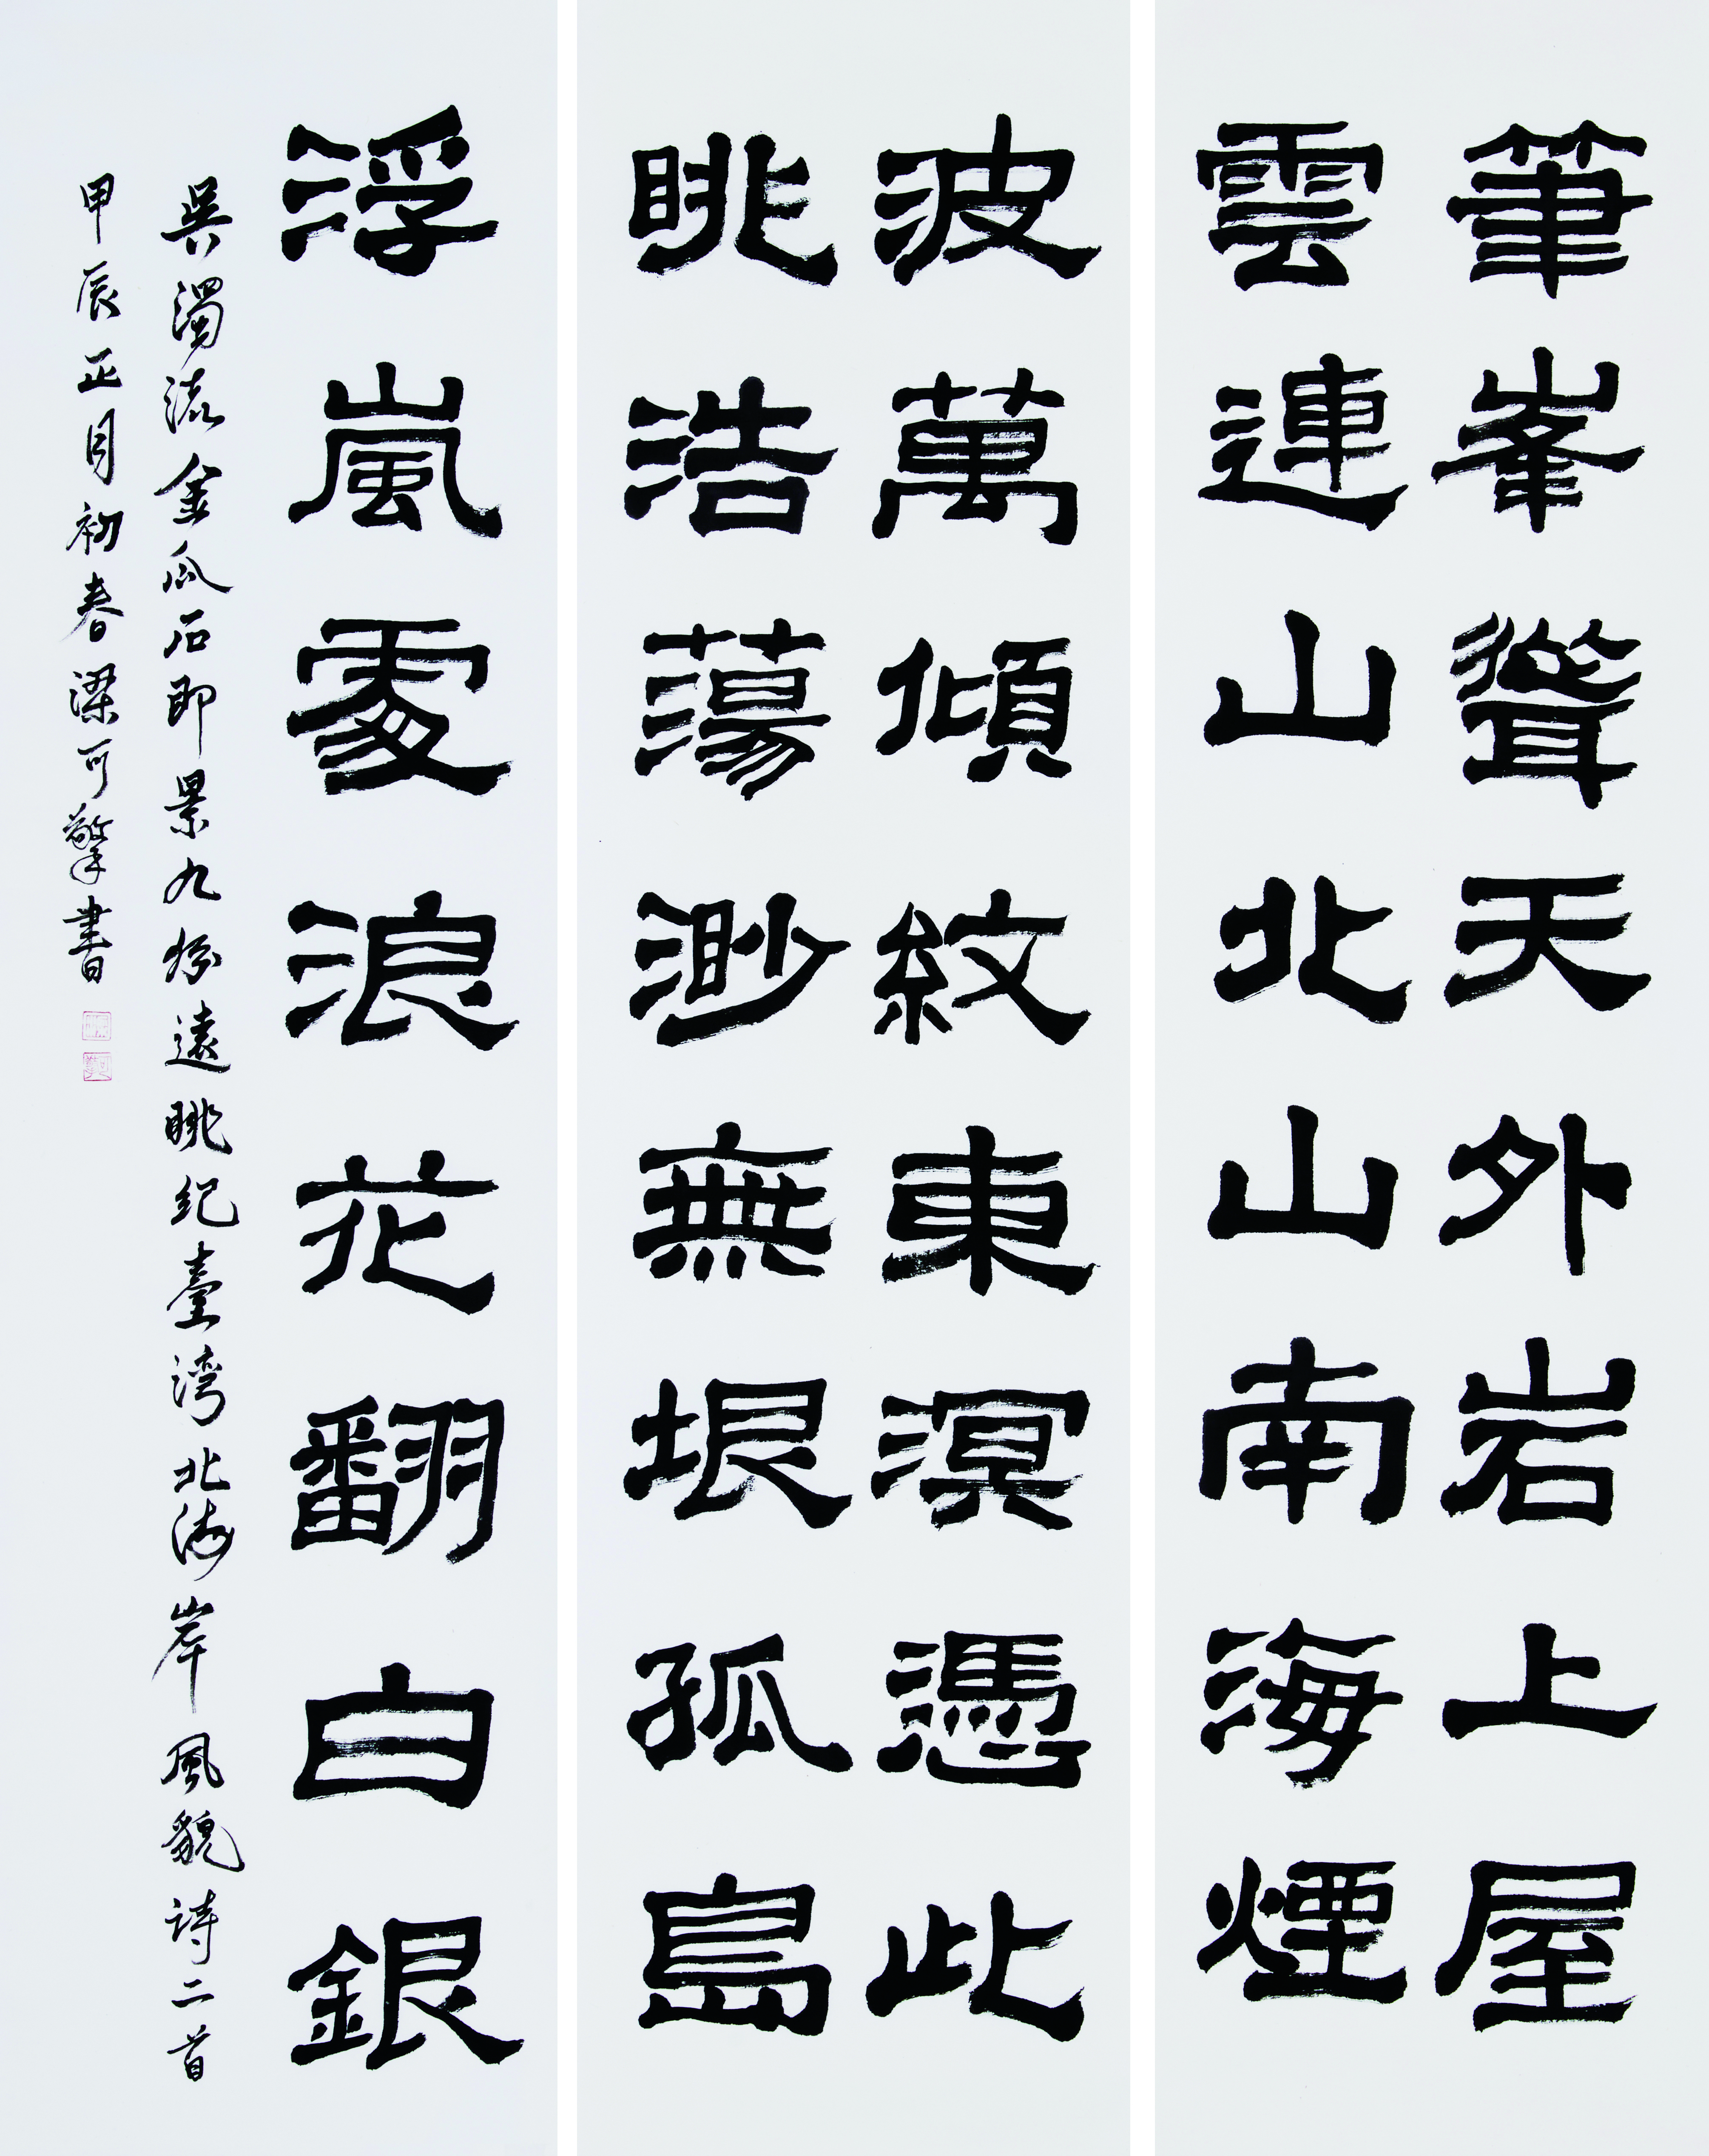 筆峯聳天外岩上屋
雲連山北山南海煙
波萬傾紋東溟憑此
眺浩蕩渺無垠孤島
浮嵐處浪花翻白銀
吳濁流金瓜石即景九份遠眺紀臺灣北海岸風貌詩二首
甲辰正月初春梁可擎書